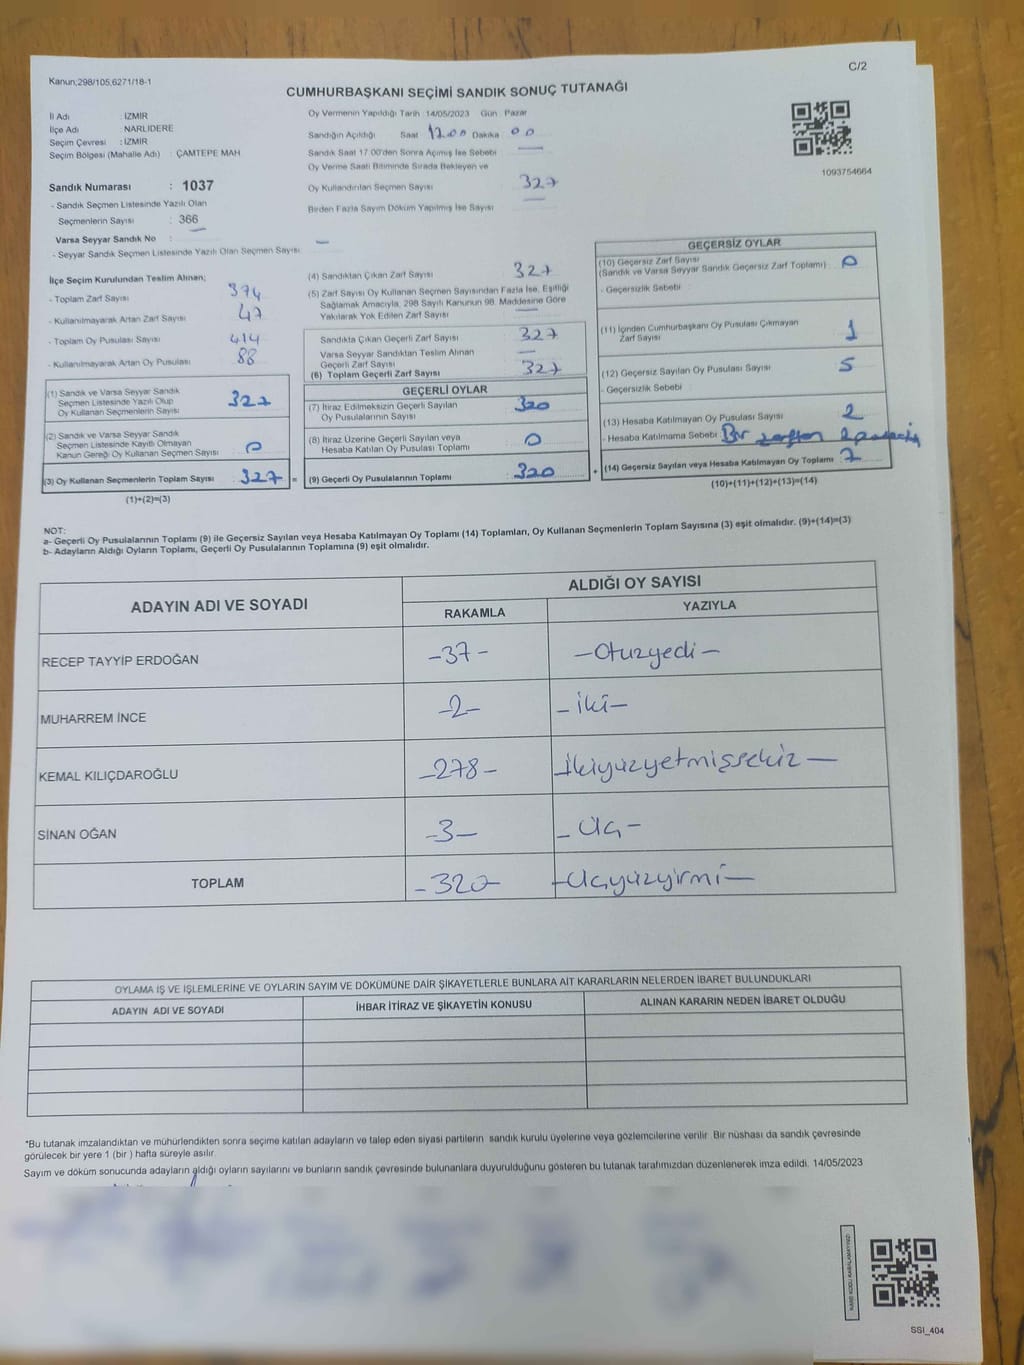 Kanun;298/105,6271/18-1
C/2
CUMHURBAŞKANI SEÇİMİ SANDIK SONUÇ TUTANAĞI
İl Adı : İZMİR
İlçe Adı : NARLIDERE
Seçim Çevresi : İZMİR
Seçim Bölgesi (Mahalle Adı) : ÇAMTEPE MAH
Sandık Numarası : 1037
- Sandık Seçmen Listesinde Yazılı Olan
Seçmenlerin Sayısı : 366
Varsa Seyyar Sandık No :
- Seyyar Sandık Seçmen Listesinde Yazılı Olan Seçmen Sayısı : —
Oy Vermenin Yapıldığı Tarih : 14/05/2023 Gün : Pazar
Sandığın Açıldığı Saat 17.00 Dakika 00
Sandık Saat 17.00'den Sonra Açımış İse Sebebi —
Oy Verme Saati Bitiminde Sırada Bekleyen ve
Oy Kullandırılan Seçmen Sayısı 327
Birden Fazla Sayım Döküm Yapılmış İse Sayısı —
1093754664
İlçe Seçim Kurulundan Teslim Alınan;
- Toplam Zarf Sayısı 374
- Kullanılmayarak Artan Zarf Sayısı 47
- Toplam Oy Pusulası Sayısı 414
- Kullanılmayarak Artan Oy Pusulası 88
(1) Sandık ve Varsa Seyyar Sandık
Seçmen Listesinde Yazılı Olup
Oy Kullanan Seçmenlerin Sayısı 327
(2) Sandık ve Varsa Seyyar Sandık
Seçmen Listesinde Kayıtlı Olmayan
Kanun Gereği Oy Kullanan Seçmen Sayısı 0
(3) Oy Kullanan Seçmenlerin Toplam Sayısı : 327 =
(1)+(2)=(3)
(4) Sandıktan Çıkan Zarf Sayısı 327
(5) Zarf Sayısı Oy Kullanan Seçmen Sayısından Fazla İse, Eşitliği
Sağlamak Amacıyla, 298 Sayılı Kanunun 98. Maddesine Göre
Yakılarak Yok Edilen Zarf Sayısı —
Sandıkta Çıkan Geçerli Zarf Sayısı 327
Varsa Seyyar Sandıktan Teslim Alınan
Geçerli Zarf Sayısı —
(6) Toplam Geçerli Zarf Sayısı 327
GEÇERLİ OYLAR
(7) İtiraz Edilmeksizin Geçerli Sayılan
Oy Pusulalarının Sayısı 320
(8) İtiraz Üzerine Geçerli Sayılan veya
Hesaba Katılan Oy Pusulası Toplamı 0
(9) Geçerli Oy Pusulalarının Toplamı : 320 +
GEÇERSİZ OYLAR
(10) Geçersiz Zarf Sayısı
(Sandık ve Varsa Seyyar Sandık Geçersiz Zarf Toplamı) : 0
- Geçersizlik Sebebi :
(11) İçinden Cumhurbaşkanı Oy Pusulası Çıkmayan
Zarf Sayısı 1
(12) Geçersiz Sayılan Oy Pusulası Sayısı 5
- Geçersizlik Sebebi :
(13) Hesaba Katılmayan Oy Pusulası Sayısı 2
- Hesaba Katılmama Sebebi : Bir zarftan 2
(14) Geçersiz Sayılan veya Hesaba Katılmayan Oy Toplamı : 7
(10)+(11)+(12)+(13)=(14)
NOT:
a- Geçerli Oy Pusulalarının Toplamı (9) ile Geçersiz Sayılan veya Hesaba Katılmayan Oy Toplamı (14) Toplamları, Oy Kullanan Seçmenlerin Toplam Sayısına (3) eşit olmalıdır. (9)+(14)=(3)
b- Adayların Aldığı Oyların Toplamı, Geçerli Oy Pusulalarının Toplamına (9) eşit olmalıdır.
ADAYIN ADI VE SOYADI
ALDIĞI OY SAYISI
RAKAMLA YAZIYLA
RECEP TAYYİP ERDOĞAN -37- -Otuzyedi-
MUHARREM İNCE -2- -İki-
KEMAL KILIÇDAROĞLU -278- İkiyüzyetmişsekiz-
SİNAN OĞAN -3- -Üç-
TOPLAM -320- -Üçyüzyirmi-
OYLAMA İŞ VE İŞLEMLERİNE VE OYLARIN SAYIM VE DÖKÜMÜNE DAİR ŞİKAYETLERLE BUNLARA AİT KARARLARIN NELERDEN İBARET BULUNDUKLARI
ADAYIN ADI VE SOYADI İHBAR İTİRAZ VE ŞİKAYETİN KONUSU ALINAN KARARIN NEDEN İBARET OLDUĞU
*Bu tutanak imzalandıktan ve mühürlendikten sonra seçime katılan adayların ve talep eden siyasi partilerin sandık kurulu üyelerine veya gözlemcilerine verilir. Bir nüshası da sandık çevresinde
görülecek bir yere 1 (bir ) hafta süreyle asılır.
Sayım ve döküm sonucunda adayların aldığı oyların sayılarını ve bunların sandık çevresinde bulunanlara duyurulduğunu gösteren bu tutanak tarafımızdan düzenlenerek imza edildi. 14/05/2023
KARE KODU KARALAMAYINIZ!
SSI_404